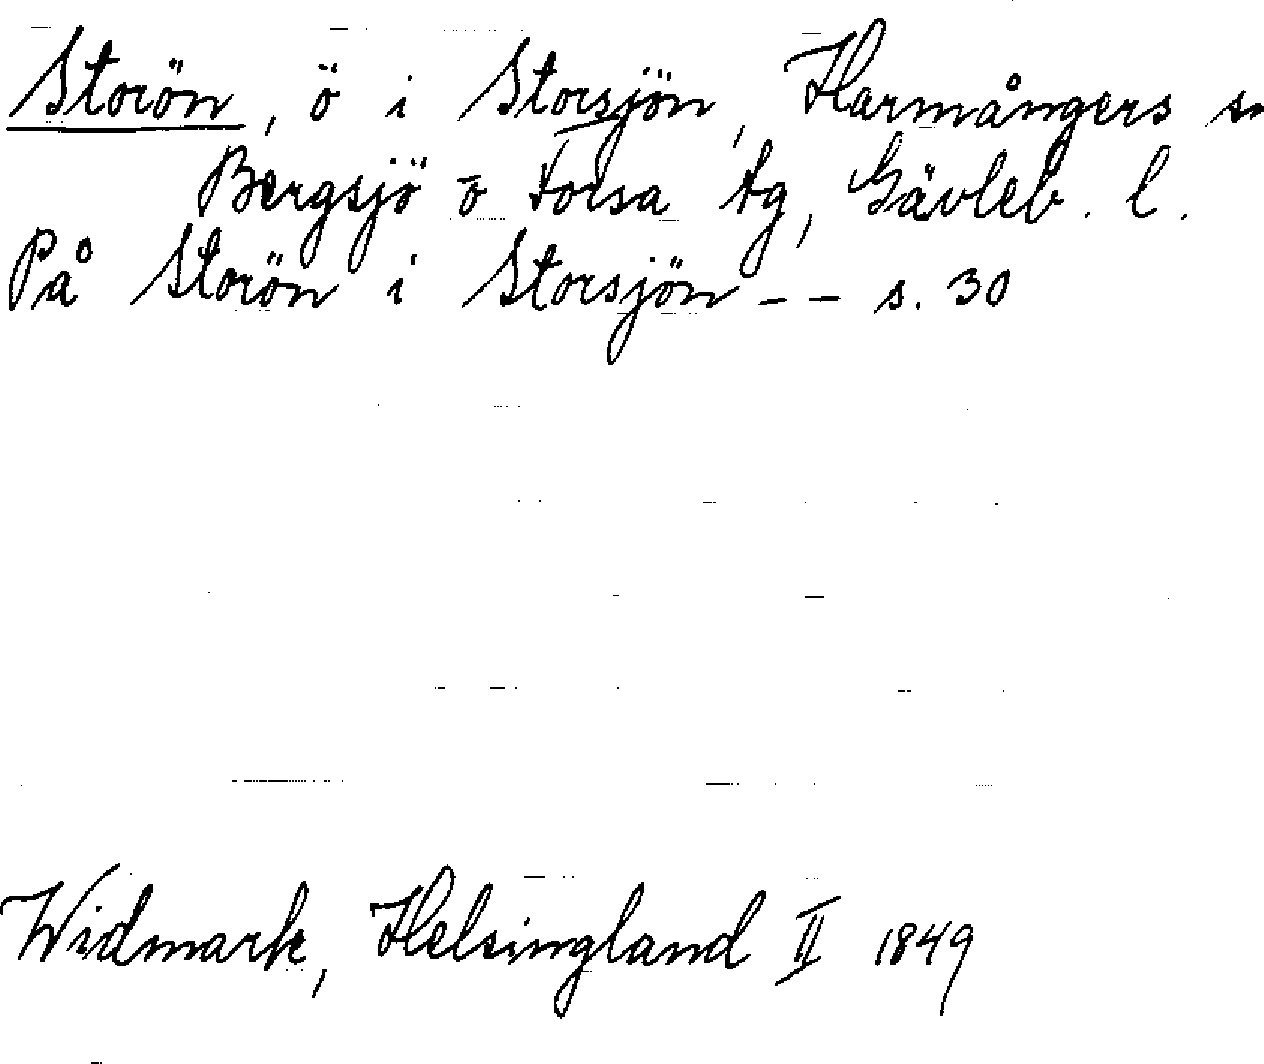 Storön, ö i Storsjön, Harmångers sn
Bergsjö o Forsa tg, Gävleb. l.
På Storön i Storsjön - - s. 30
Widmark, Helsingland II 1849